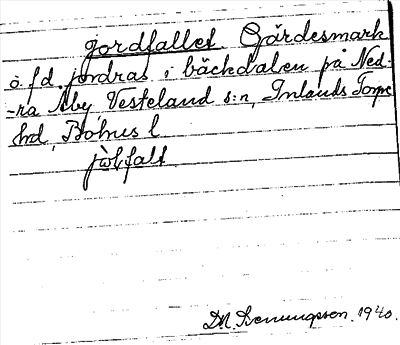 Jordfallet Gärdesmark
å f.d. jordras i bäckdalen på Ned-
-ra Åby, Vesteland s:n, Inlands Torpe
hd, Bohus l.
D.N. 1940.